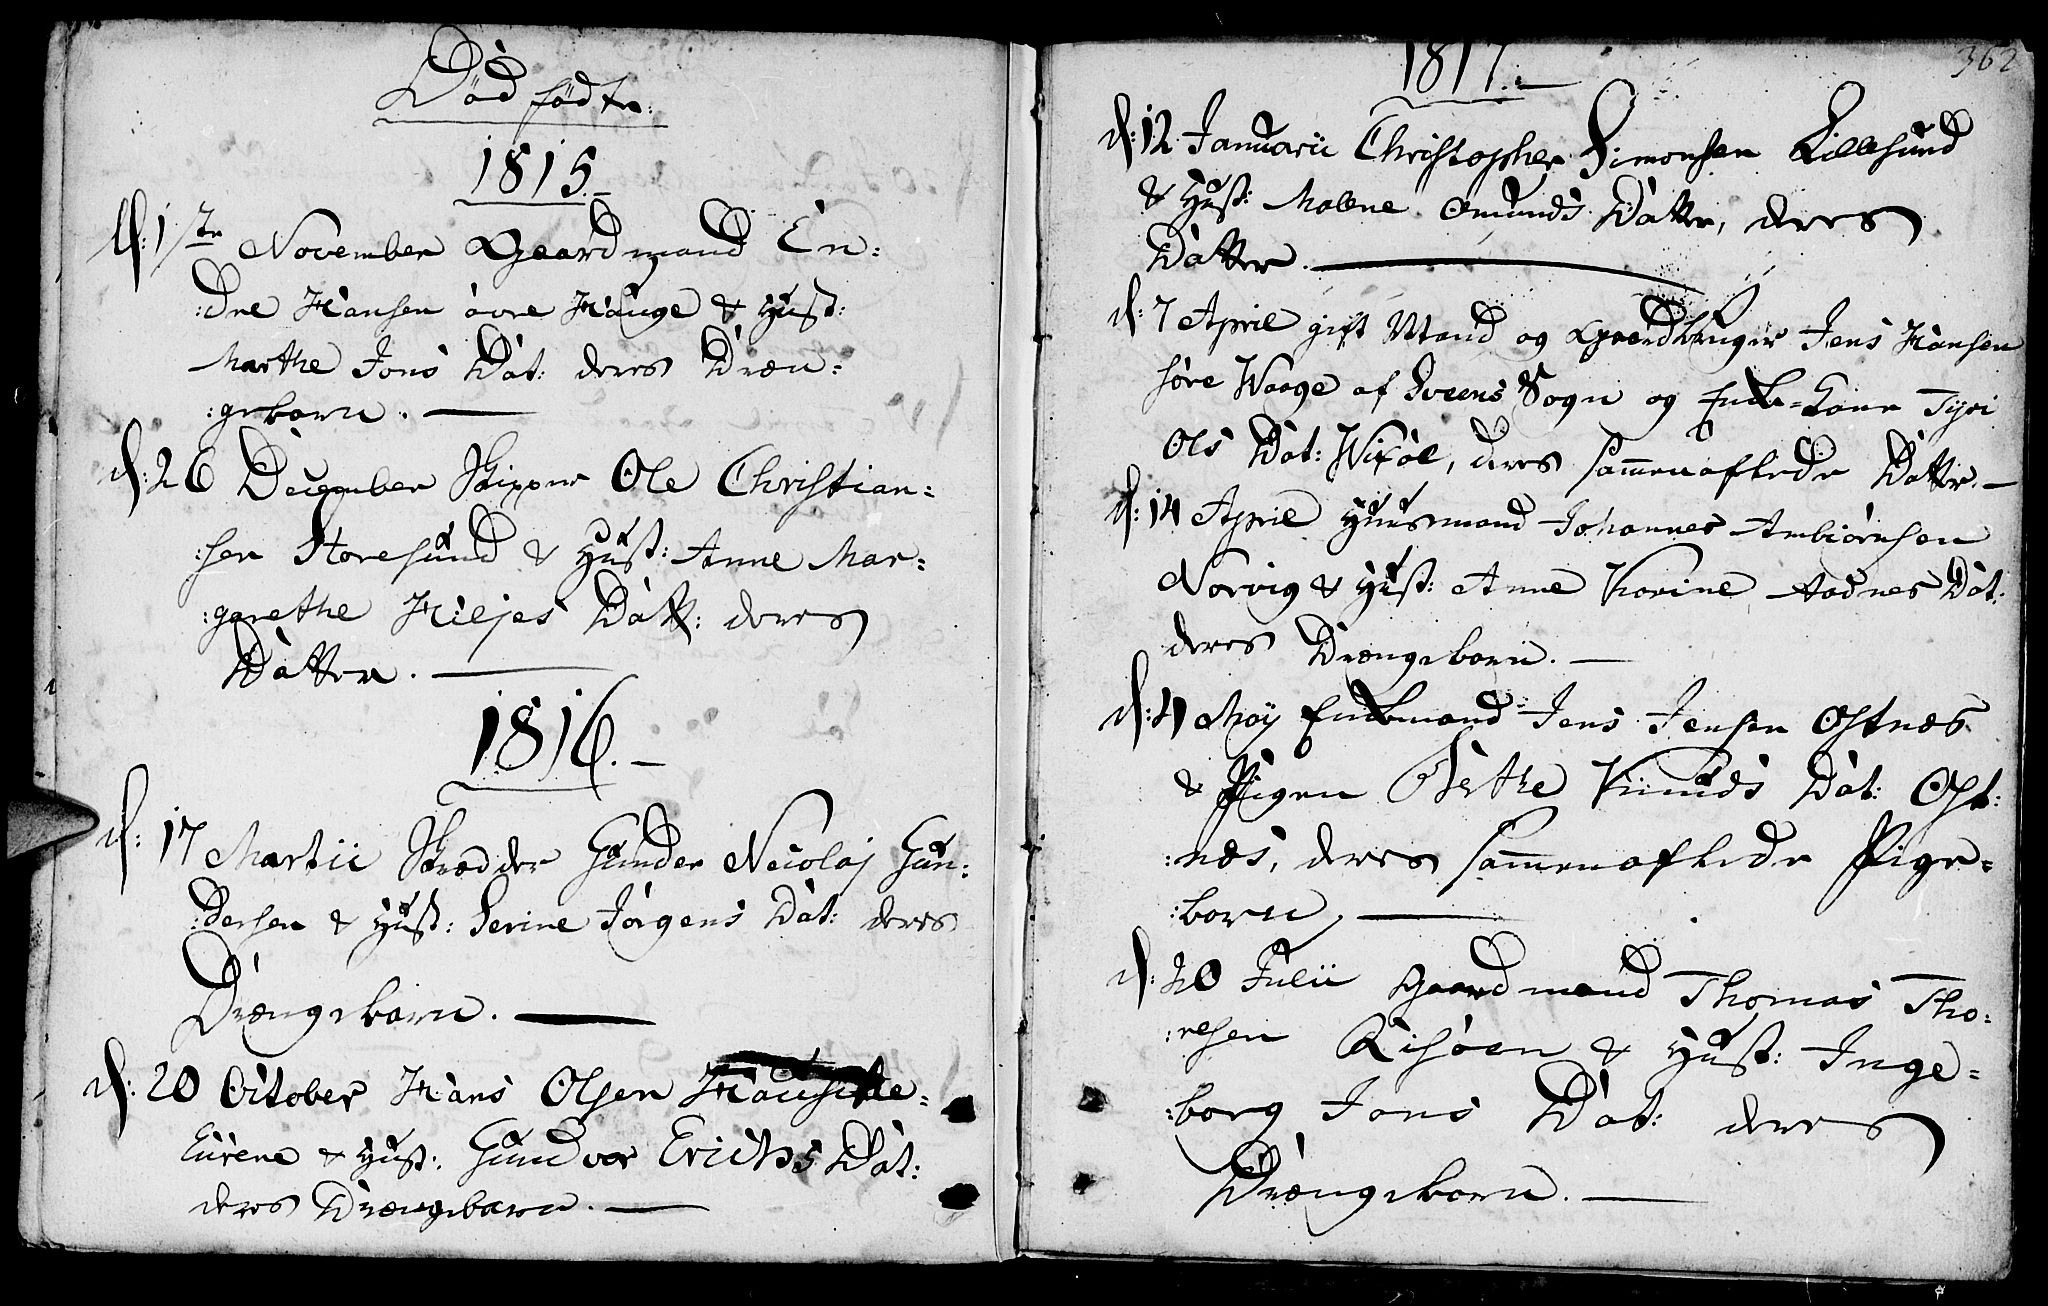 Död födte:
1815.
d: 1ste November Gaardmand En=
:dre Hansen övre Hauge & Hust:
Marthe Jons Dat: deres Dræn=
:gebarn.
d: 26 December Skipper Ole Christian=
:sen Storesund & Hust: Anne Mar=
:grethe Kiljes Datt: deres
Datter.
1816.
d: 17 Martii Skrædder Gunder Nicolaj Gun=
:dersen & Hust: Serine Jörgens Dat: deres
Drængebarn.
d: 20 October Hans Olsen
& Hust: Gundvor Erichs Dat:
deres Drængebarn.
362
1817.
d: 12 Januarii Christopher Simonsen Lillesund
& Hust: Malene Omunds Datter, deres
Datter.
d: 7 April gift Mand og Gaardbruger Jens Hansen
söre Waage af Sveens Sogn og Enke-Kone Tyri
Ols Dat: Wixöl, deres sammenaflede Datter.
d: 14 April Huusmand Johannes Ambiörnsen
Norvig & Hust: Anne Karine Aadnes Dat:
deres Drængebarn.
d: 21 Maÿ Enkemand Jens Jensen Ostnæs
& Pigen Berthe Knuds Dat: Ost:
:næs, deres sammenaflede Pige=
:barn,
d: 20 Julii Gaardmand Thomas Tho:
:resen Risöen & Hust: Inge=
:borg Jons Dat: deres
Drængebarn.